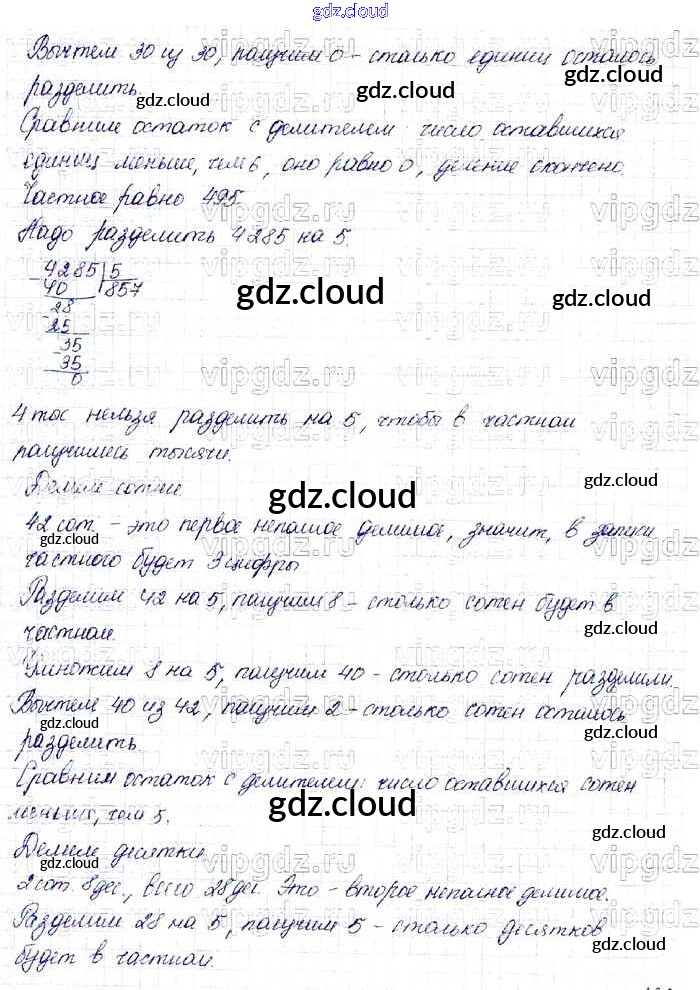 gdz.cloud
Вычтем 30 из 30, получим 0 - столько единиц осталось
разделить.
gdz.cloud
gdz.cloud
Сравним остаток с делителем: число оставшихся
единиц меньше, чем 6, оно равно 0, деление окончено.
Частное равно 495.
Надо разделить 4285 на 5.
4285 5
40 857
28
25
35
35
0
gdz.cloud
gdz.cloud
4 тыс нельзя разделить на 5, чтобы в частном
получились тысячи.
gdz.cloud
Делим сотни.
gdz.cloud
42 сот. - это первое неполное делимое, значит, в записи
частного будет 3 цифры
Разделим 42 на 5, получим 8 - столько сотен будет в
частном.
gdz.cloud
Умножим 8 на 5, получим 40 - столько сотен разделили.
Вычтем 40 из 42, получим 2 - столько сотен осталось
разделить.
gdz.cloud
gdz.cloud
Сравним остаток с делителем: число оставшихся сотен
меньше, чем 5.
gdz.cloud
gdz.cloud
Делим десятки.
2 сот. 8 дес., всего 28 дес. Это - второе неполное делимое.
Разделим 28 на 5, получим 5 - столько десятков
будет в частном.
gdz.cloud
gdz.cloud
vipgdz.ru